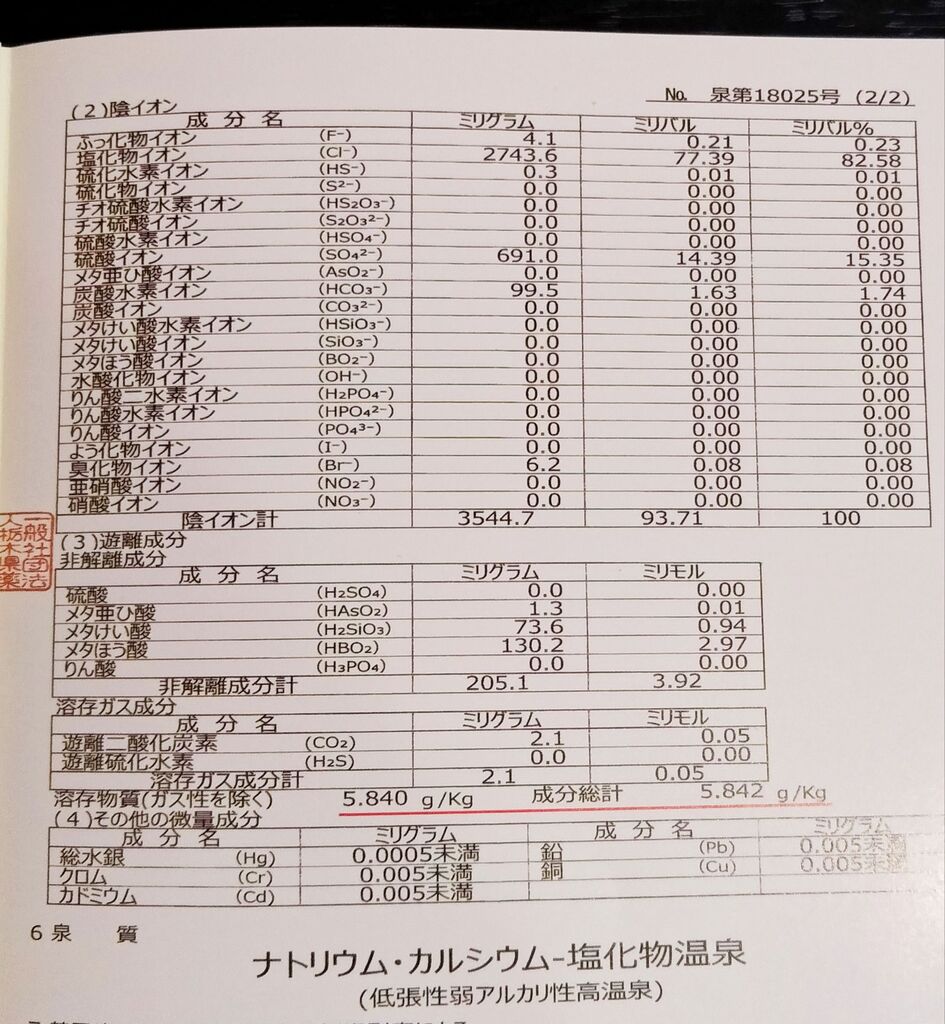 No. 泉第18025号 (2/2)
(2)陰イオン
成 分 名 ミリグラム ミリバル ミリバル%
ふっ化物イオン (F⁻) 4.1 0.21 0.23
塩化物イオン (Cl⁻) 2743.6 77.39 82.58
硫化水素イオン (HS⁻) 0.3 0.01 0.01
硫化物イオン (S²⁻) 0.0 0.00 0.00
チオ硫酸水素イオン (HS₂O₃⁻) 0.0 0.00 0.00
チオ硫酸イオン (S₂O₃²⁻) 0.0 0.00 0.00
硫酸水素イオン (HSO₄⁻) 0.0 0.00 0.00
硫酸イオン (SO₄²⁻) 691.0 14.39 15.35
メタ亜ひ酸イオン (AsO₂⁻) 0.0 0.00 0.00
炭酸水素イオン (HCO₃⁻) 99.5 1.63 1.74
炭酸イオン (CO₃²⁻) 0.0 0.00 0.00
メタけい酸水素イオン (HSiO₃⁻) 0.0 0.00 0.00
メタけい酸イオン (SiO₃⁻) 0.0 0.00 0.00
メタほう酸イオン (BO₂⁻) 0.0 0.00 0.00
水酸化物イオン (OH⁻) 0.0 0.00 0.00
りん酸二水素イオン (H₂PO₄⁻) 0.0 0.00 0.00
りん酸水素イオン (HPO₄²⁻) 0.0 0.00 0.00
りん酸イオン (PO₄³⁻) 0.0 0.00 0.00
よう化物イオン (I⁻) 0.0 0.00 0.00
臭化物イオン (Br⁻) 6.2 0.08 0.08
亜硝酸イオン (NO₂⁻) 0.0 0.00 0.00
硝酸イオン (NO₃⁻) 0.0 0.00 0.00
陰イオン計 3544.7 93.71 100
一般社団法
人栃木県薬
(3)遊離成分
非解離成分
成 分 名 ミリグラム ミリモル
硫酸 (H₂SO₄) 0.0 0.00
メタ亜ひ酸 (HAsO₂) 1.3 0.01
メタけい酸 (H₂SiO₃) 73.6 0.94
メタほう酸 (HBO₂) 130.2 2.97
りん酸 (H₃PO₄) 0.0 0.00
非解離成分計 205.1 3.92
溶存ガス成分
成 分 名 ミリグラム ミリモル
遊離二酸化炭素 (CO₂) 2.1 0.05
遊離硫化水素 (H₂S) 0.0 0.00
溶存ガス成分計 2.1 0.05
溶存物質(ガス性を除く) 5.840 g/Kg 成分総計 5.842 g/Kg
(4)その他の微量成分
成 分 名 ミリグラム 成 分 名 ミリグラム
総水銀 (Hg) 0.0005未満 鉛 (Pb) 0.005未満
クロム (Cr) 0.005未満 銅 (Cu) 0.005未満
カドミウム (Cd) 0.005未満
6 泉 質
ナトリウム・カルシウム-塩化物温泉
(低張性弱アルカリ性高温泉)